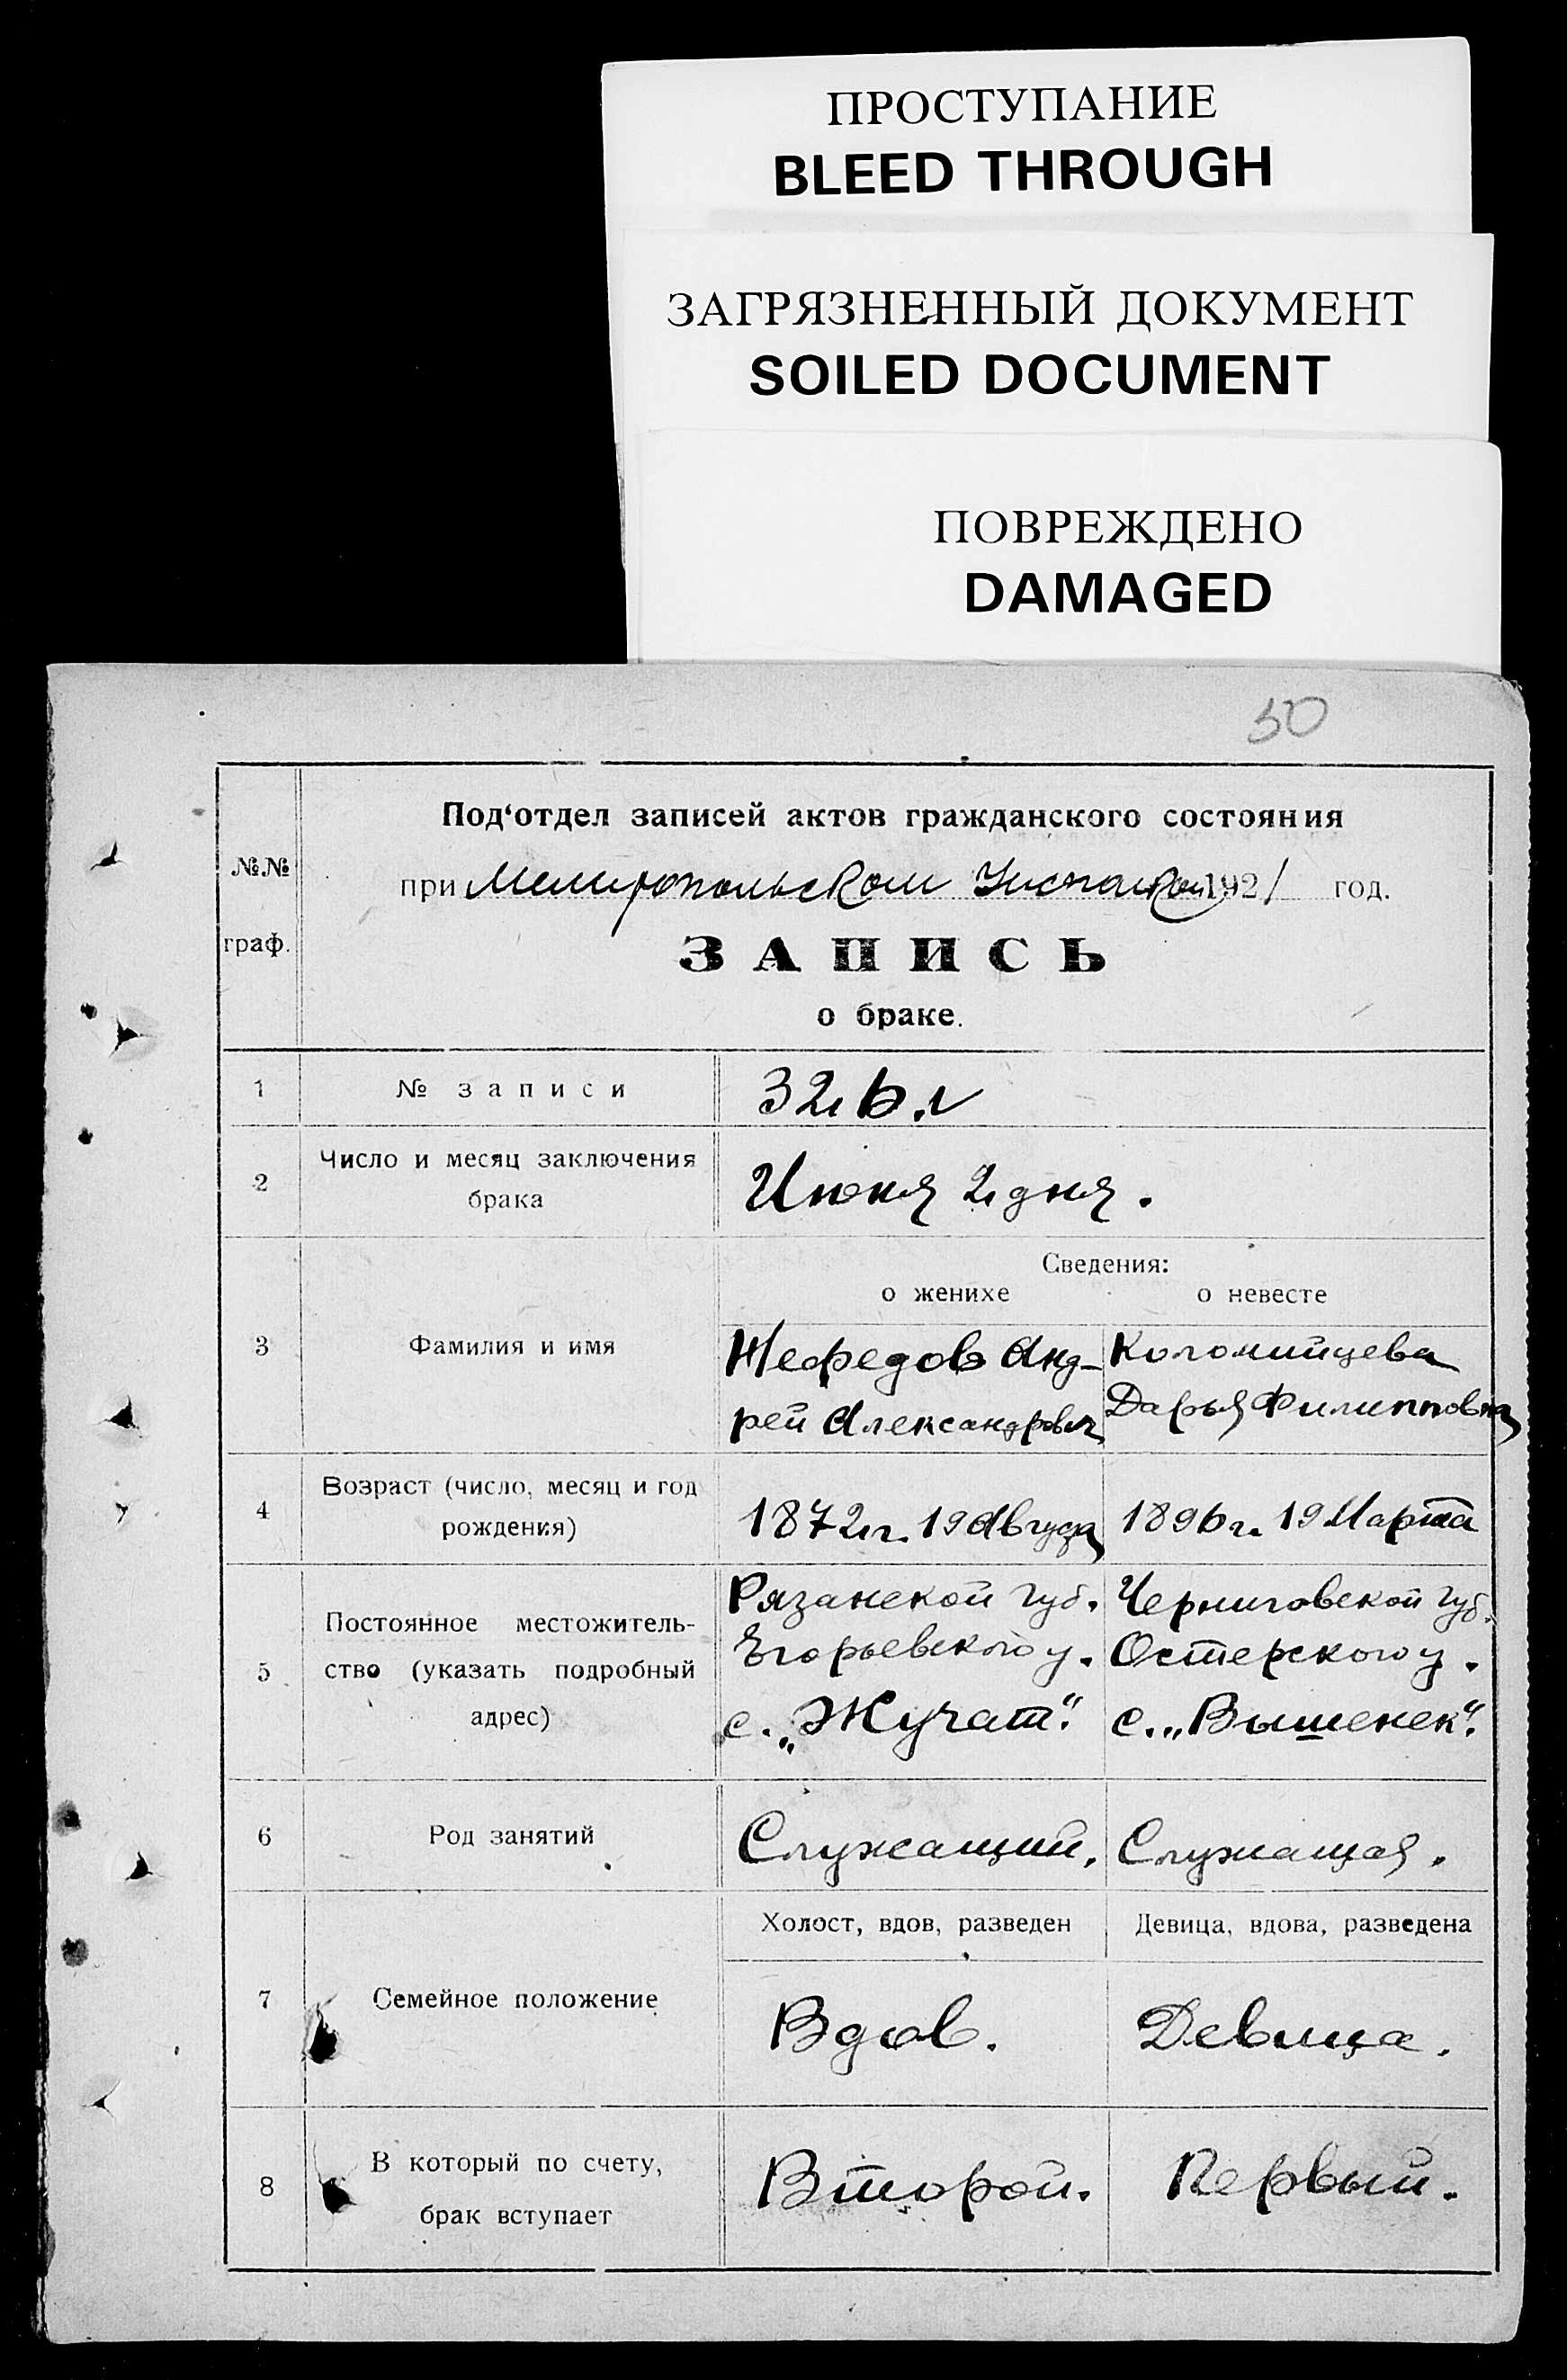 ПРОСТУПАНИЕ
BLEED THROUGH
ЗАГРЯЗНЕННЫЙ ДОКУМЕНТ
SOILED DOCUMENT
ПОВРЕЖДЕНО
DAMAGED
50
Под‘отдел записей актов гражданского состояния
№№
при Мелитопольском 1921 год.
граф.
ЗАПИСЬ
о браке.
1 № записи 326.
2 Число и месяц заключения
брака
Июня 2 дня.
Сведения:
о женихе о невесте
3 Фамилия и имя
Нефедов Анд- Коломийцева
рей Александрович Дарья Филипповна
4 Возраст (число, месяц и год
рождения)
1872 г. 19 Августа 1896 г. 19 Марта
5 Постоянное местожитель-
ство (указать подробный
адрес)
Рязанской губ. Черниговской губ.
Егорьевского у. Остерского у.
с. „Жучат“. с. „Вышенек“.
6 Род занятий Служащий. Служащая.
Холост, вдов, разведен Девица, вдова, разведена
7 Семейное положение Вдов. Девица.
8 В который по счету,
брак вступает
Второй. Первый.